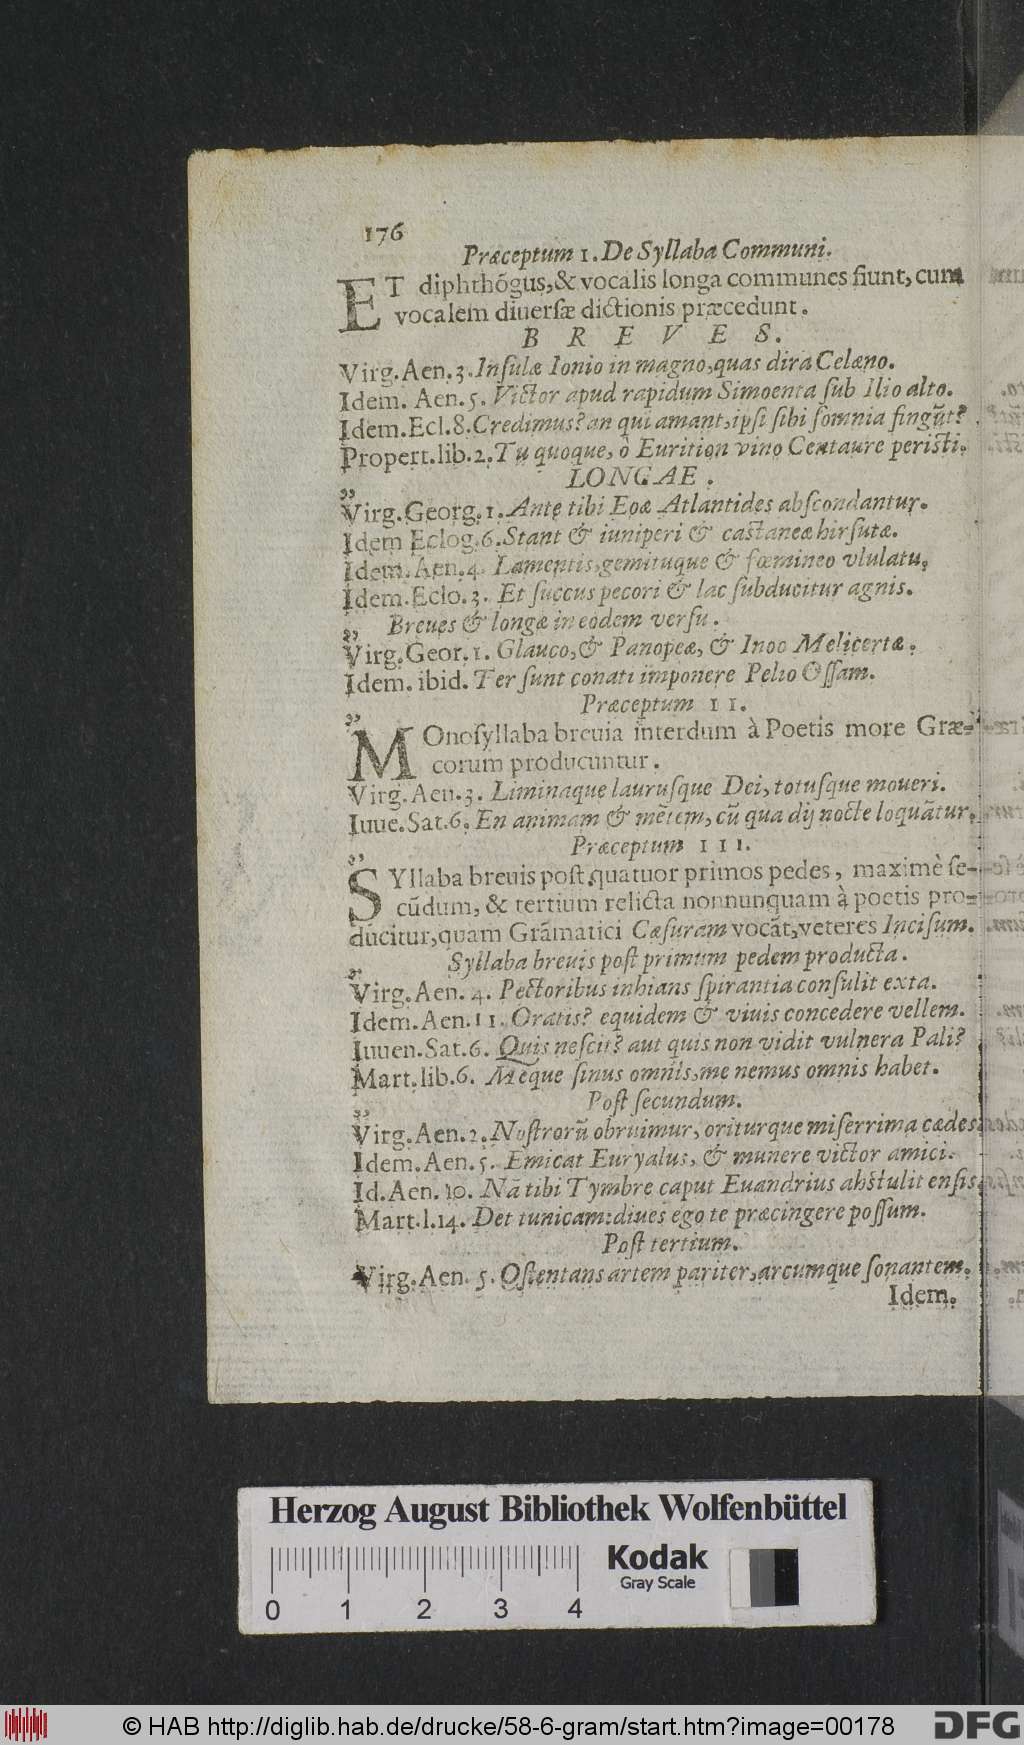 176
Præceptum 1. De Syllaba Communi.
ET diphthõgus, & vocalis longa communes fiunt, cum
vocalem diuersæ dictionis præcedunt.
B R E V E S.
Virg. Aen. 3. Insulæ Ionio in magno, quas dira Celæno.
Idem. Aen. 5. Victor apud rapidum Simoenta sub Ilio alto.
Idem. Ecl. 8. Credimus? an qui amant, ipsi sibi somnia fingũt?
Propert. lib. 2. Tu quoque, ò Eurition vino Centaure peristi.
LONGAE.
„
Virg. Georg. 1. Ante tibi Eoæ Atlantides abscondantur.
Idem Eclog. 6. Stant & iuniperi & castaneæ hirsutæ.
Idem. Aen. 4. Lamentis, gemituque & fœmineo vlulatu,
Idem. Eclo. 3. Et succus pecori & lac subducitur agnis.
Breues & longæ in eodem versu.
„
Virg. Geor. 1. Glauco, & Panopeæ, & Inoo Melicertæ.
Idem. ibid. Ter sunt conati imponere Pelio Ossam.
Præceptum II.
„
MOnosyllaba breuia interdum à Poetis more Græ-
corum producuntur.
Virg. Aen. 3. Liminaque laurusque Dei, totusque moueri.
Iuue. Sat. 6. En animam & mẽtem, cũ qua dij nocte loquãtur.
Præceptum III.
„
SYllaba breuis post quatuor primos pedes, maximè se-
cũdum, & tertium relicta nonnunquam à poetis pro-
ducitur, quam Grãmatici Cæsuram vocãt, veteres Incisum.
Syllaba breuis post primum pedem producta.
„
Virg. Aen. 4. Pectoribus inhians spirantia consulit exta.
Idem. Aen. 11. Oratis? equidem & viuis concedere vellem.
Iuuen. Sat. 6. Quis nescit? aut quis non vidit vulnera Pali?
Mart. lib. 6. Meque sinus omnis, me nemus omnis habet.
Post secundum.
„
Virg. Aen. 2. Nostrorũ obruimur, oriturque miserrima cædes
Idem. Aen. 5. Emicat Euryalus, & munere victor amici.
Id. Aen. 10. Nã tibi Tymbre caput Euandrius abstulit ensis.
Mart. l. 14. Det tunicam: diues ego te præcingere possum.
Post tertium.
Virg. Aen. 5. Ostentans artem pariter, arcumque sonantem.
Idem.
Herzog August Bibliothek Wolfenbüttel
Kodak
Gray Scale
0 1 2 3 4
© HAB http://diglib.hab.de/drucke/58-6-gram/start.htm?image=00178
DFG